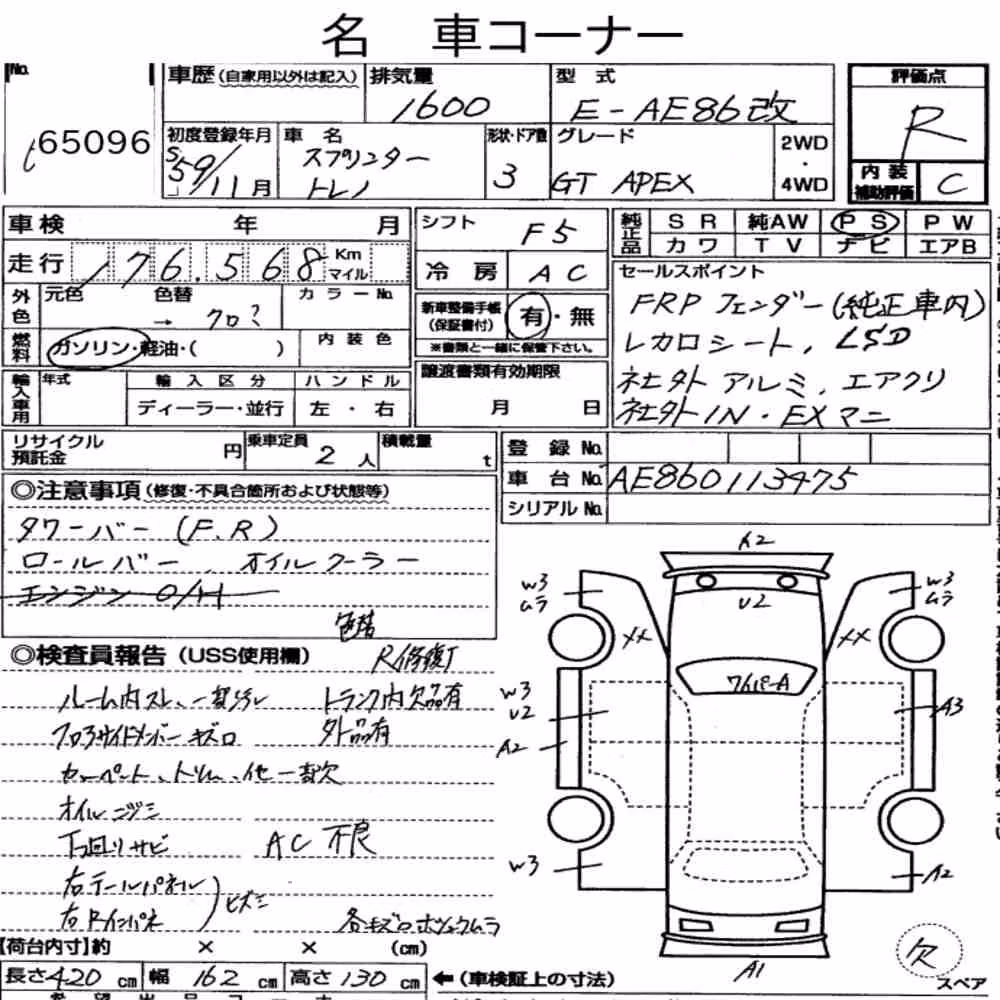 名 車コーナー
No. 65096
車歴 (自家用以外は記入) 排気量 1600 型式 E-AE86改 評価点 R
初度登録年月 S59/11月 車名 スプリンタートレノ 形状・ドア数 3 グレード GT APEX 2WD・4WD
内装補助評価 C
車検 年 月 シフト F5 純正品 SR 純AW PS PW
カワ TV ナビ エアB
走行 176,568 Km マイル 冷房 AC
セールスポイント
FRP フェンダー(純正車内)
レカロシート, LSD
社外アルミ, エアクリ
社外IN・EXマニ
外色 元色 色替 → クロ? カラーNo.
新車整備手帳(保証書付) 有・無
※書類と一緒に保管下さい。
燃料 ガソリン・軽油・( ) 内装色
輸入車用 年式 輸入区分 ハンドル
ディーラー・並行 左・右
譲渡書類有効期限
月 日
リサイクル預託金 円 乗車定員 2人 積載量 t
登録No.
車台No. AE860113475
シリアルNo.
◎注意事項(修復・不具合箇所および状態等)
タワーバー (F.R)
ロールバー, オイルクーラー
エンジン O/H
色替
◎検査員報告 (USS使用欄) R修復了
ルーム内スレ、一部汚レ トランク内欠品有
フロアサイドメンバーキズロ 外品有
カーペット、トリム、他一部欠
オイルニジミ
下回リサビ AC不良
右テールパネル
右Rインパネ ヒズミ
各キズロボツムラ
【荷台内寸】約 × × (cm)
長さ420cm 幅162cm 高さ130cm ←(車検証上の寸法)
A2
W3 ムラ U2 W3 ムラ
XX XX
ワイパーA
W3 U2 A3
A2
W3 A2
A1
欠 スペア